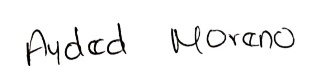 Ayded Moreno